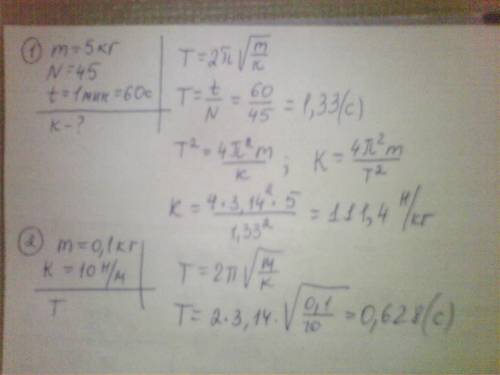 ① m = 5 кг
N = 45
t = 1 мин = 60с
K - ?
T = 2π√(m/k)
T = t/N = 60/45 = 1,33 (с)
T² = 4π²m/k ; K = 4π²m/T²
K = 4·3,14²·5/1,33² = 111,4 Н/кг
② m = 0,1 кг
K = 10 Н/м
T
T = 2π√(m/k)
T = 2·3,14·√(0,1/10) = 0,628 (с)